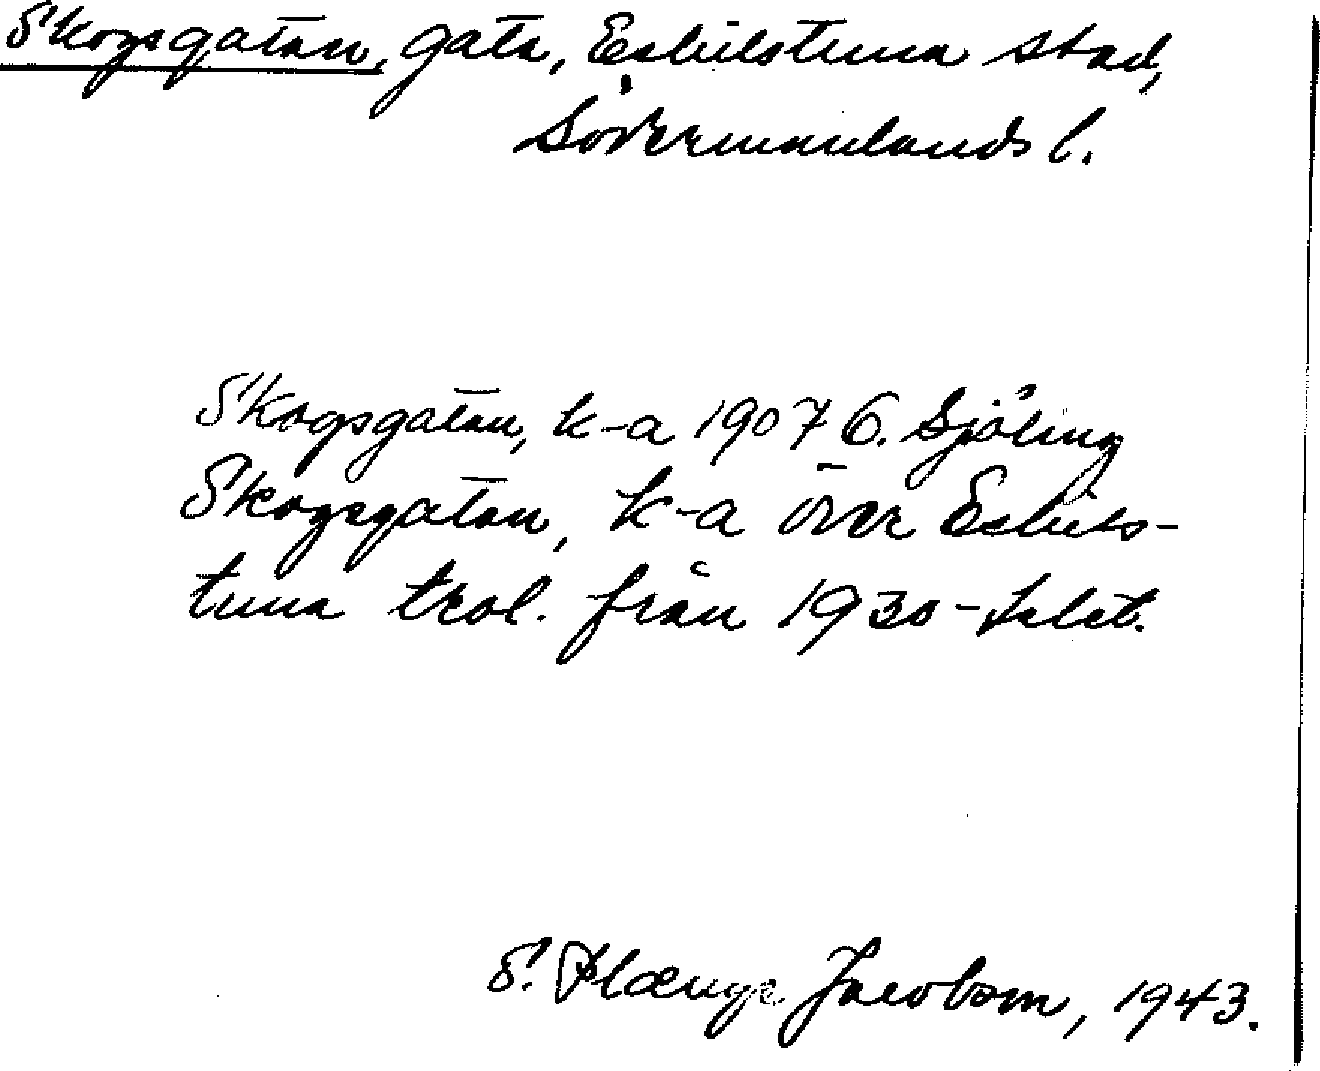 Skogsgatan, gata, Eskilstuna stad,
Södermanlands l.
Skogsgatan, k-a 1907 G. Sjöling
Skogsgatan, k-a över Eskils-
tuna trol. från 1930-talet.
S. Plænge Jacobson, 1943.